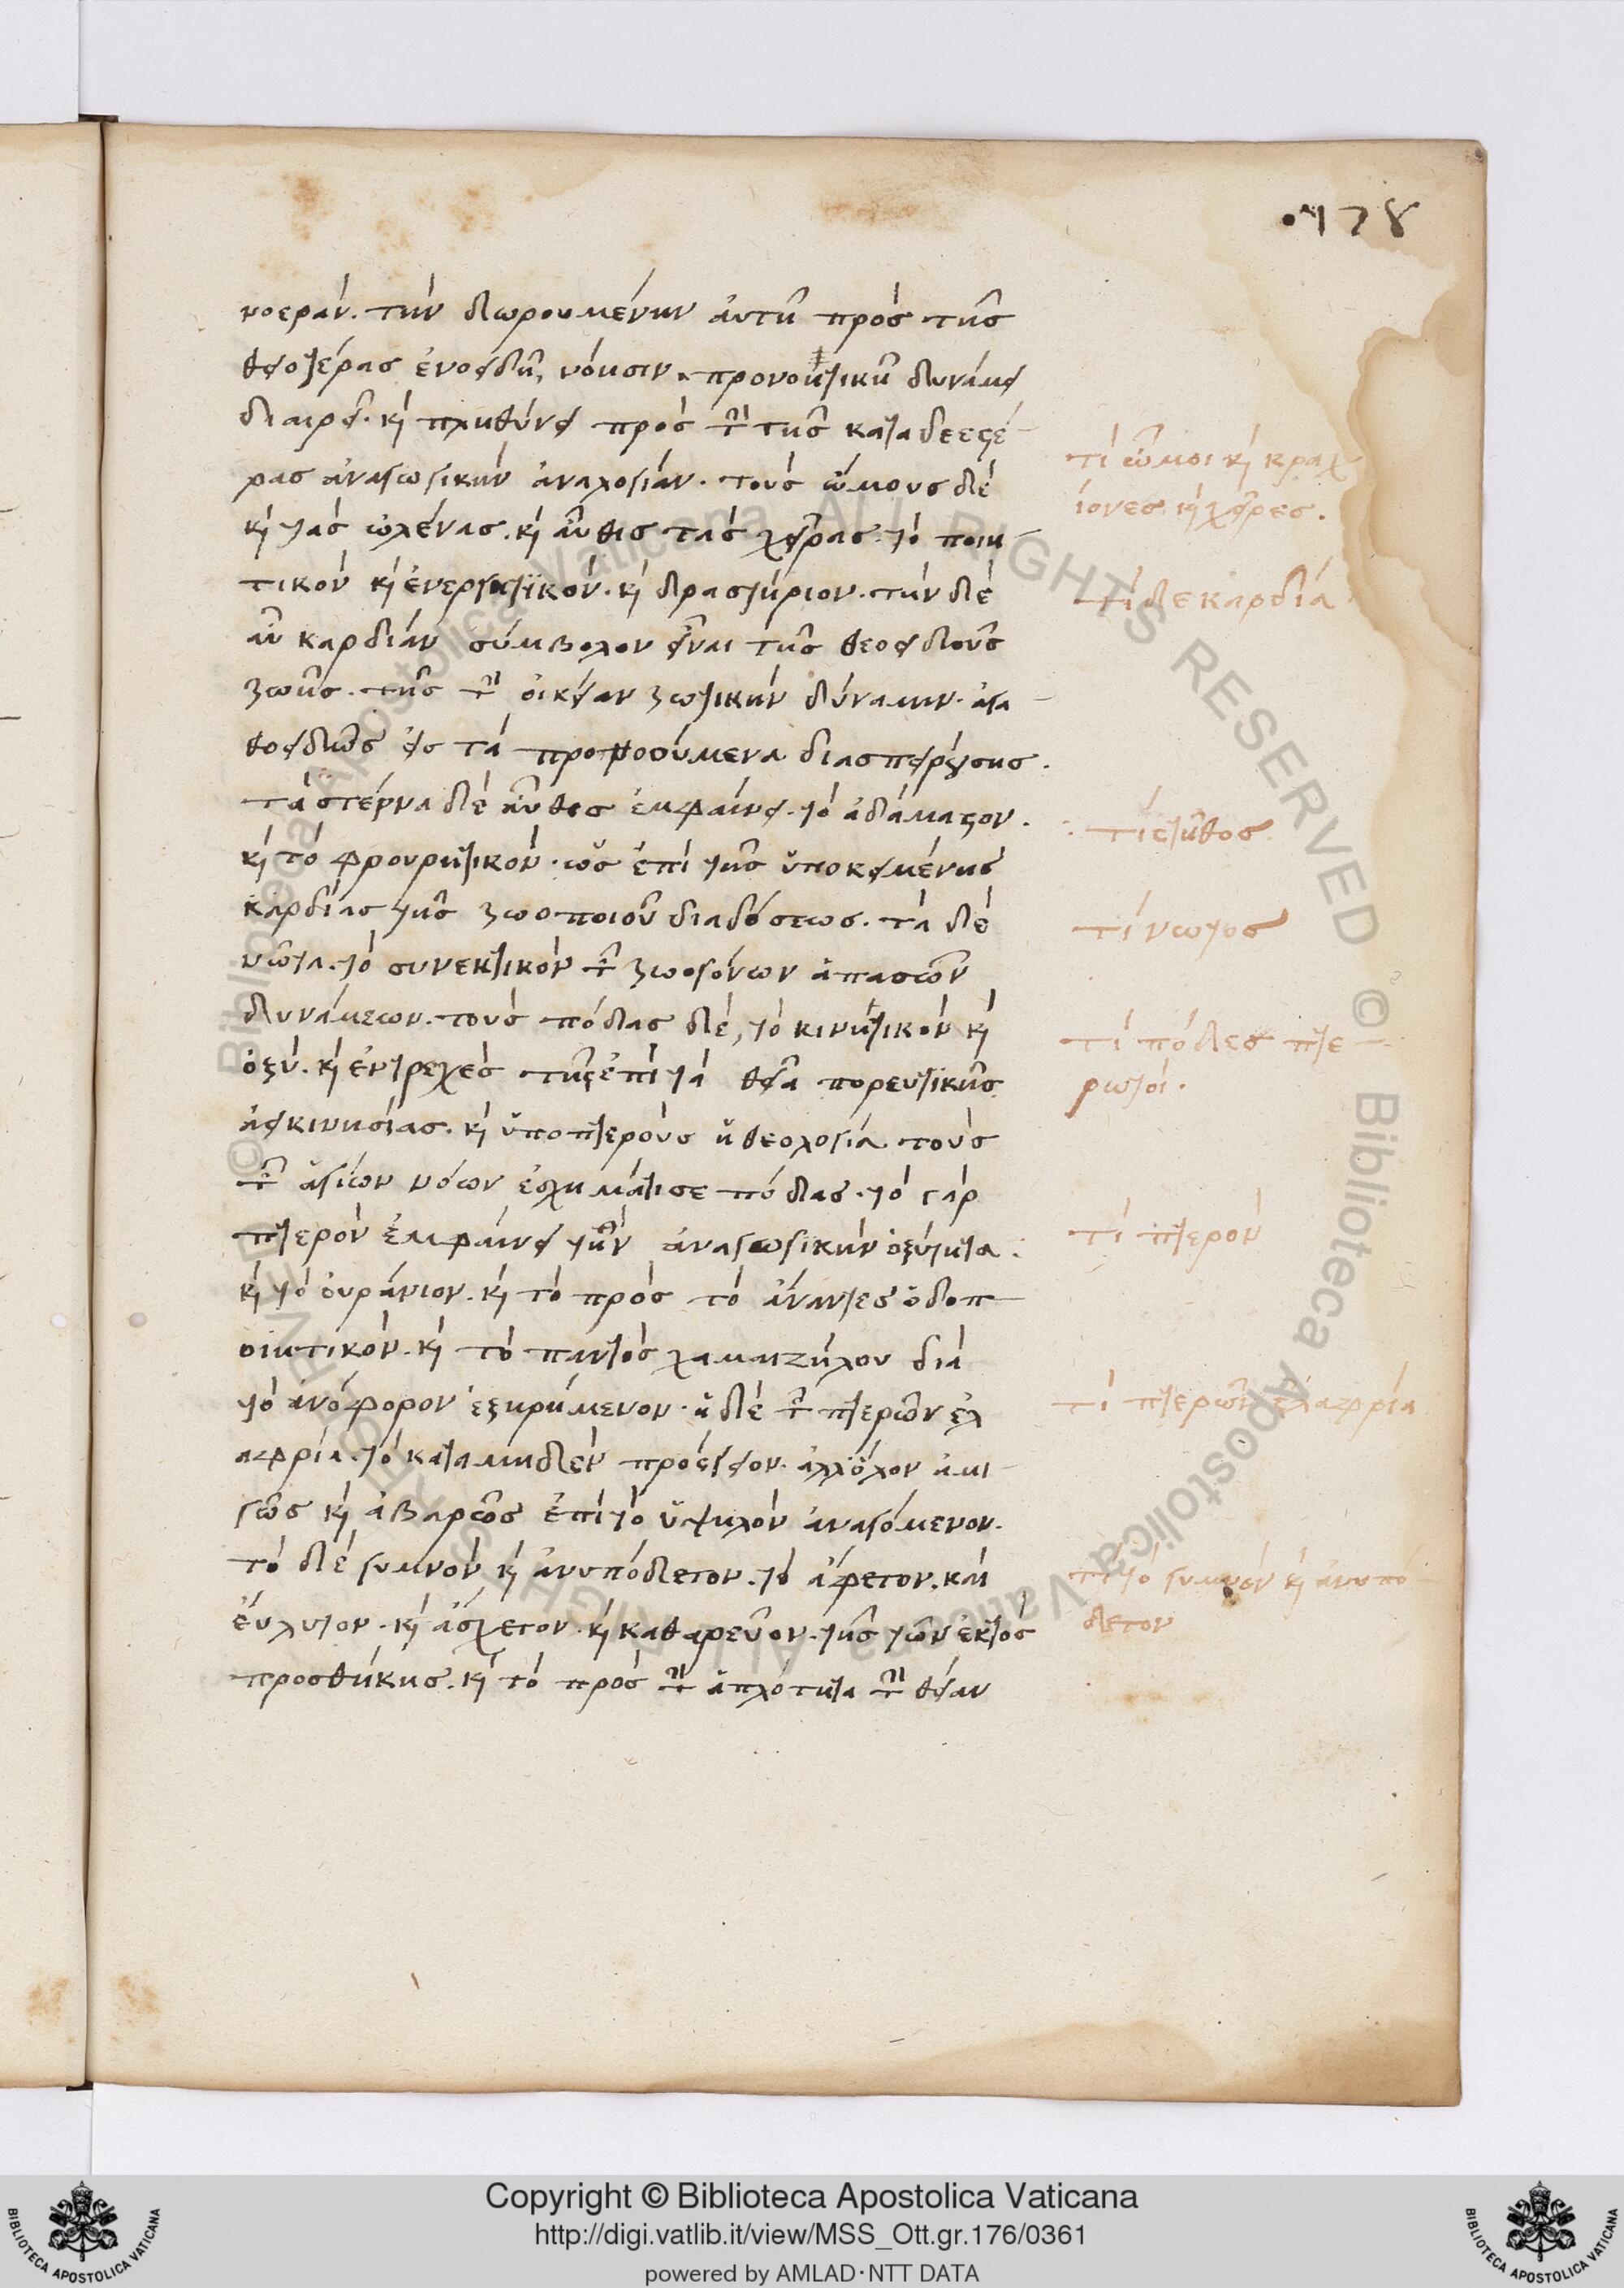 •178
νοεράν. τὴν δωρουμένην ἀυτῆ πρὸς τῆς
θειοτέρας ἑνοειδῆ, νόησιν. προνοητικῆ δυνάμει
διαιρεῖ. κὶ πληθύνει πρὸς τὴν τῆς καταδεεστέ
ρας ἀναγωγικὴν ἀναλογίαν. τοὺς ὤμους δὲ
κὶ τὰς ὠλένας. κὶ αὖθις τὰς χεῖρας. τὸ ποιη
τικὸν κὶ ἐνεργητικόν. κὶ δραστήριον. τὴν δὲ
αὖ καρδίαν σύμβολον εἶναι τῆς θεοειδοῦς
ζωῆς. τῆς τὴν οἰκείαν ζωτικὴν δύναμιν. ἀγα
θοειδῶς εἰς τὰ προνοούμενα διασπειρούσης.
τὰ στέρνα δὲ αὖθις ἐμφαίνει. τὸ ἀδάμαστον.
κὶ τὸ φρουρητικόν. ὡς ἐπὶ τῆς ὑποκειμένης
καρδίας τῆς ζωοποιοῦ διαδόσεως. τὰ δὲ
νῶτα. τὸ συνεκτικὸν τῶν ζωογόνων ἁπασῶν
δυνάμεων. τοὺς πόδας δὲ, τὸ κινητικὸν κὶ
ὀξύ. κὶ ἐντρεχὲς τῆς ἐπὶ τὰ θεῖα πορευτικῆς
ἀεικινησίας. κὶ ὑποπτέρους ἡ θεολογία τοὺς
τῶν ἁγίων νόων ἐσχημάτισε πόδας. τὸ γὰρ
πτερὸν ἐμφαίνει τὴν ἀναγωγικὴν ὀξύτητα.
κὶ τὸ ὀυράνιον. κὶ τὸ πρὸς τὸ ἄναντες ὁδοπ
οιητικὸν. κὶ τὸ παντὸς χαμαιζήλου διὰ
τὸ ἀνόφορον ἐξηρήμενον. ἡ δὲ τῶν πτερῶν ἐλ
αφρία. τὸ κατα μηδὲν πρόσγειον. ἀλλ' ὅλον ἀμι
γῶς κὶ ἀβαρῶς ἐπὶ τὸ ὑψηλὸν ἀναγόμενον.
τὸ δὲ γυμνὸν κὶ ἀνυπόδετον. τὸ ἄφετον. καὶ
ἔυλυτον. κὶ ἄσχετον. κὶ καθαρεῦον. τῆς τῶν ἐκτὸς
προσθήκης. κὶ τὸ πρὸς τὴν ἁπλότητα τὴν θείαν
τί ὦμοι κὶ βραχ
ίονες κὶ χεῖρες.
τί δὲ καρδία
τί στῆθος
τί νωτος
τί πόδες πτε
ρωτοί.
τί πτερὸν
τί πτερῶν ἐλαφρία
τί τὸ γυμνὸν κὶ ἀνυπό
δετον
Copyright © Biblioteca Apostolica Vaticana
http://digi.vatlib.it/view/MSS_Ott.gr.176/0361
powered by AMLAD·NTT DATA
BIBLIOTECA APOSTOLICA VATICANA
BIBLIOTECA APOSTOLICA VATICANA